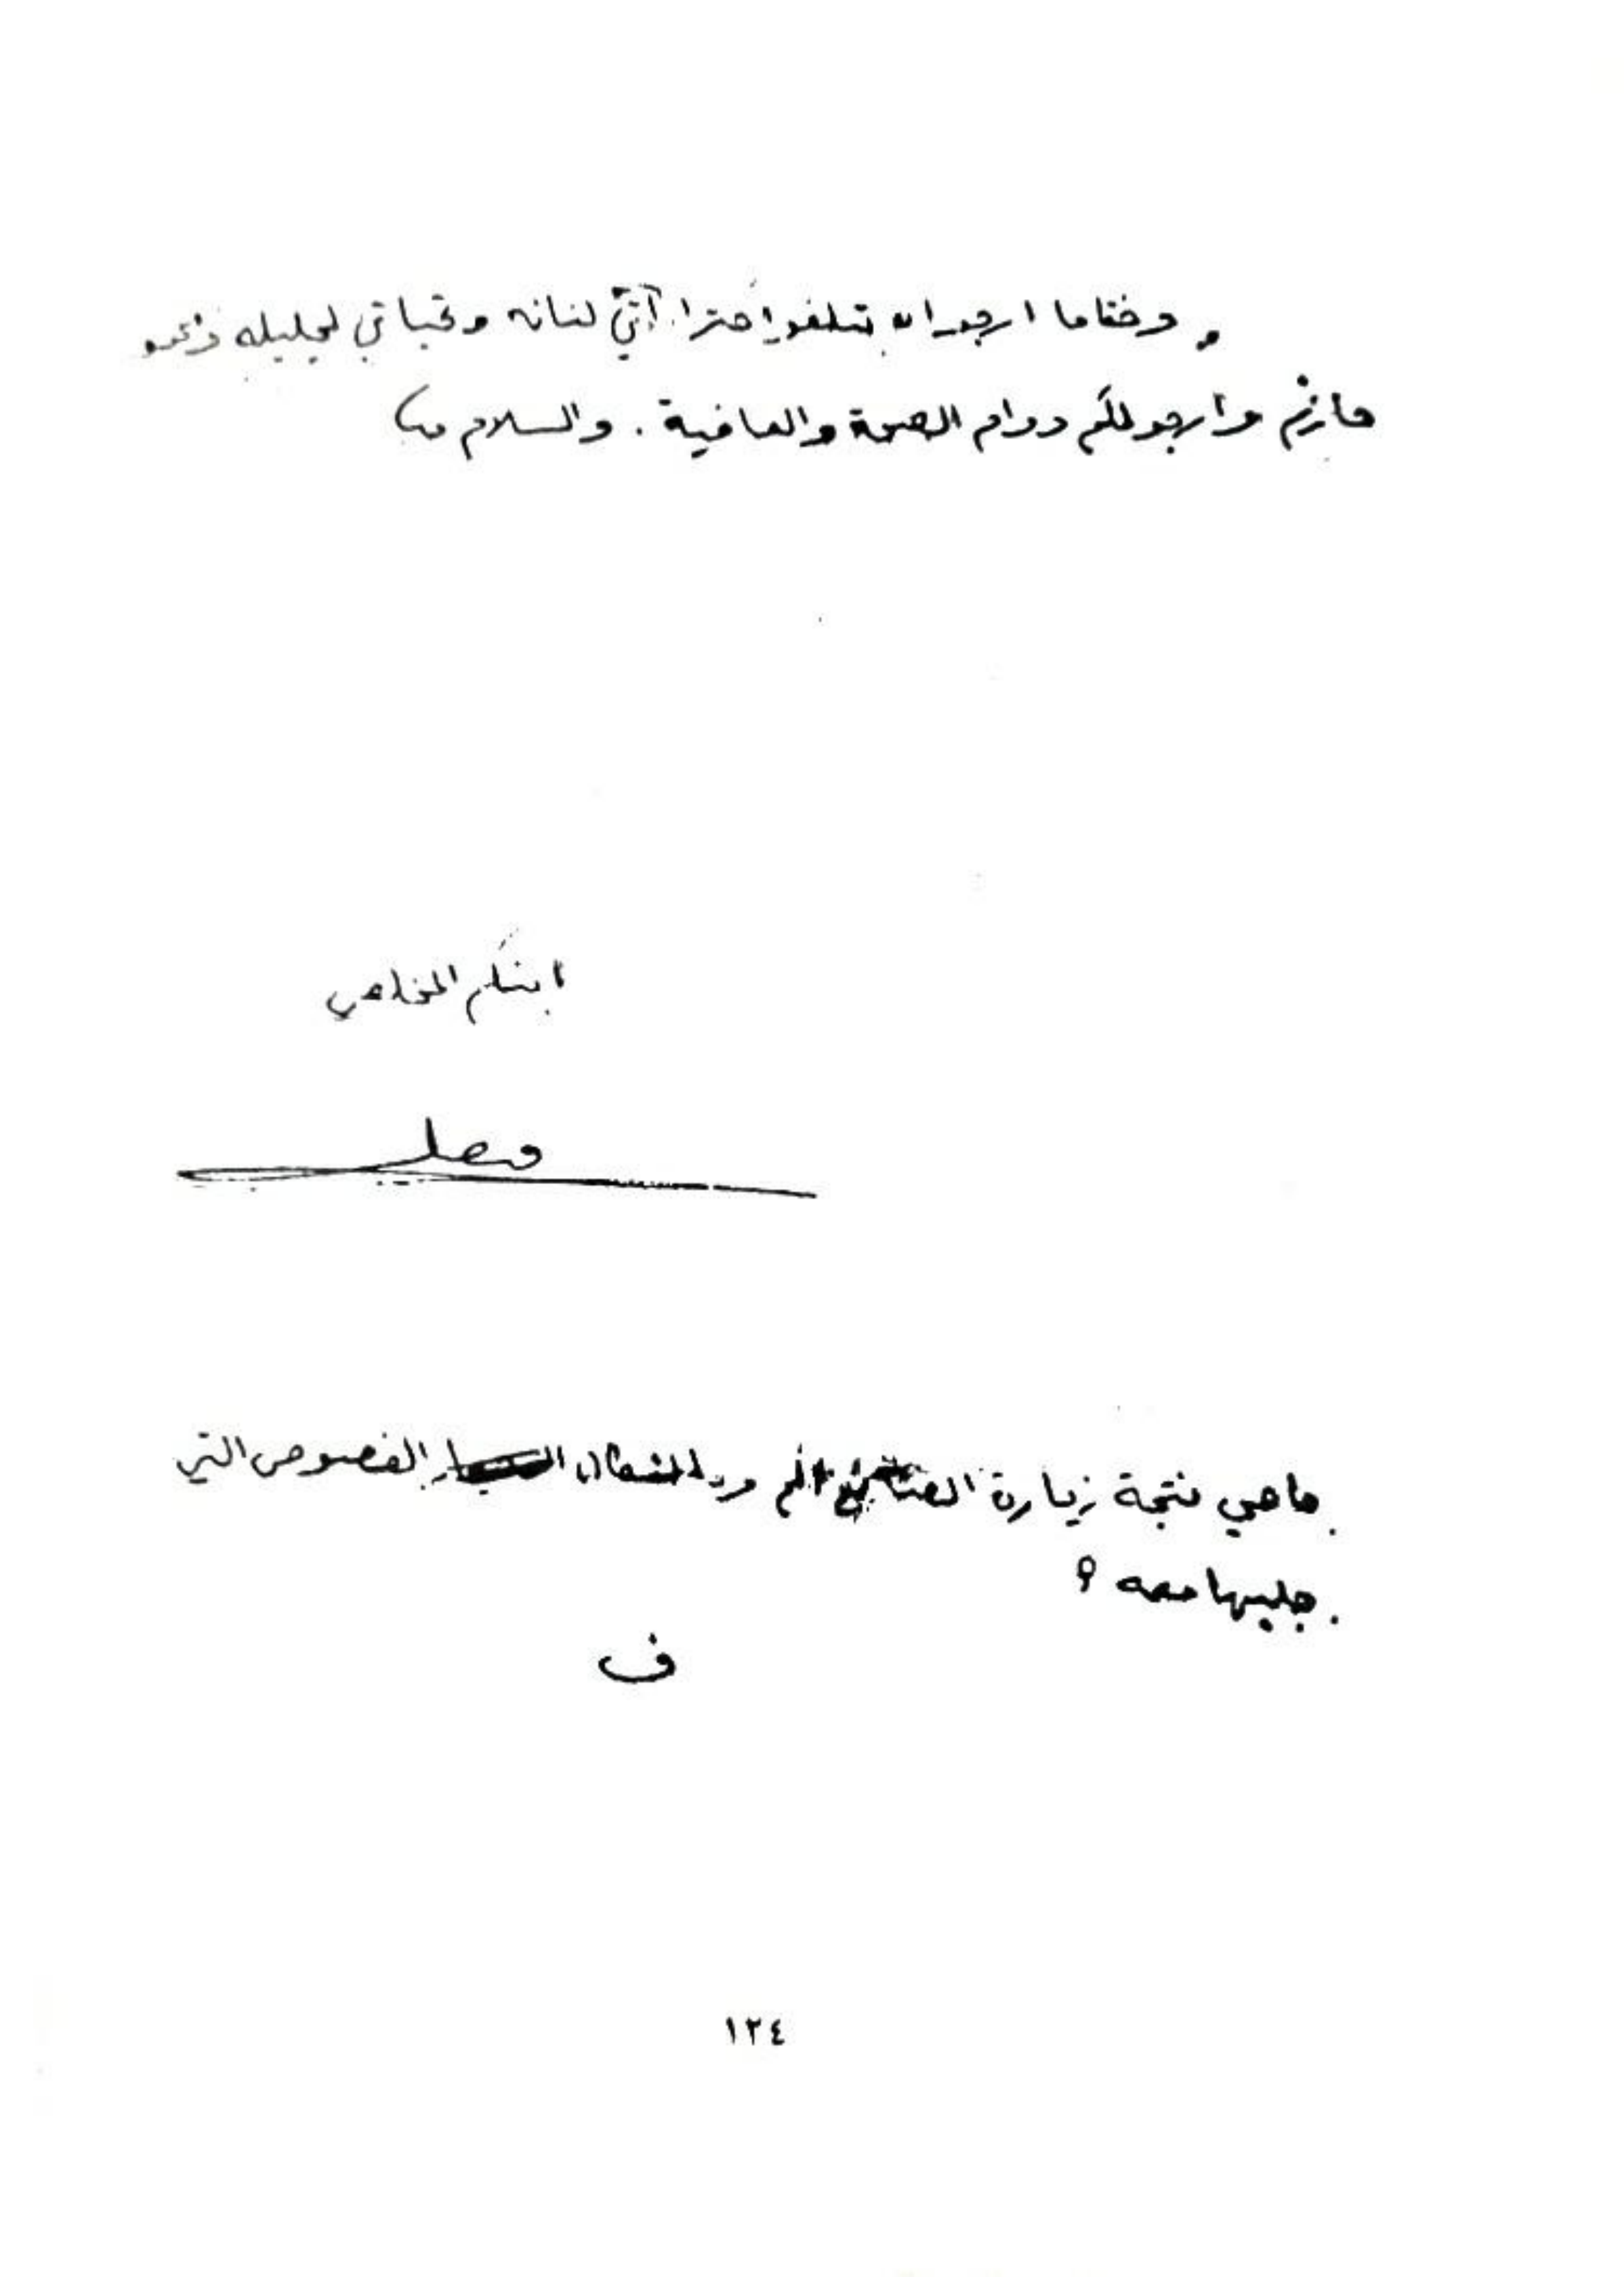 وختاما ارجو ان تبلغوا احتراماتي لنانه وتحياتي لجليله و
حازم وأرجو لكم دوام الصحة والعافية. والسلام
ابنكم المخلص
فيصل
ما هي نتجة زيارة لكم وما الفصوص التي
جلبها معه ؟
ف
١٢٤